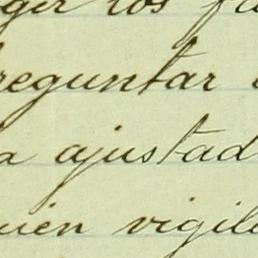 ger los fa
reguntar
a ajustad
uién vigila